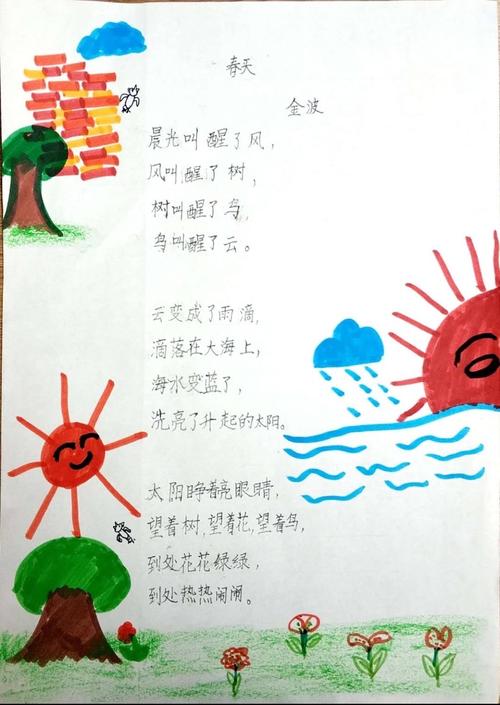 春天
金波
晨光叫醒了风，
风叫醒了树，
树叫醒了鸟，
鸟叫醒了云。
云变成了雨滴，
滴落在大海上，
海水变蓝了，
洗亮了升起的太阳。
太阳睁着亮眼睛，
望着树，望着花，望着鸟，
到处花花绿绿，
到处热热闹闹。